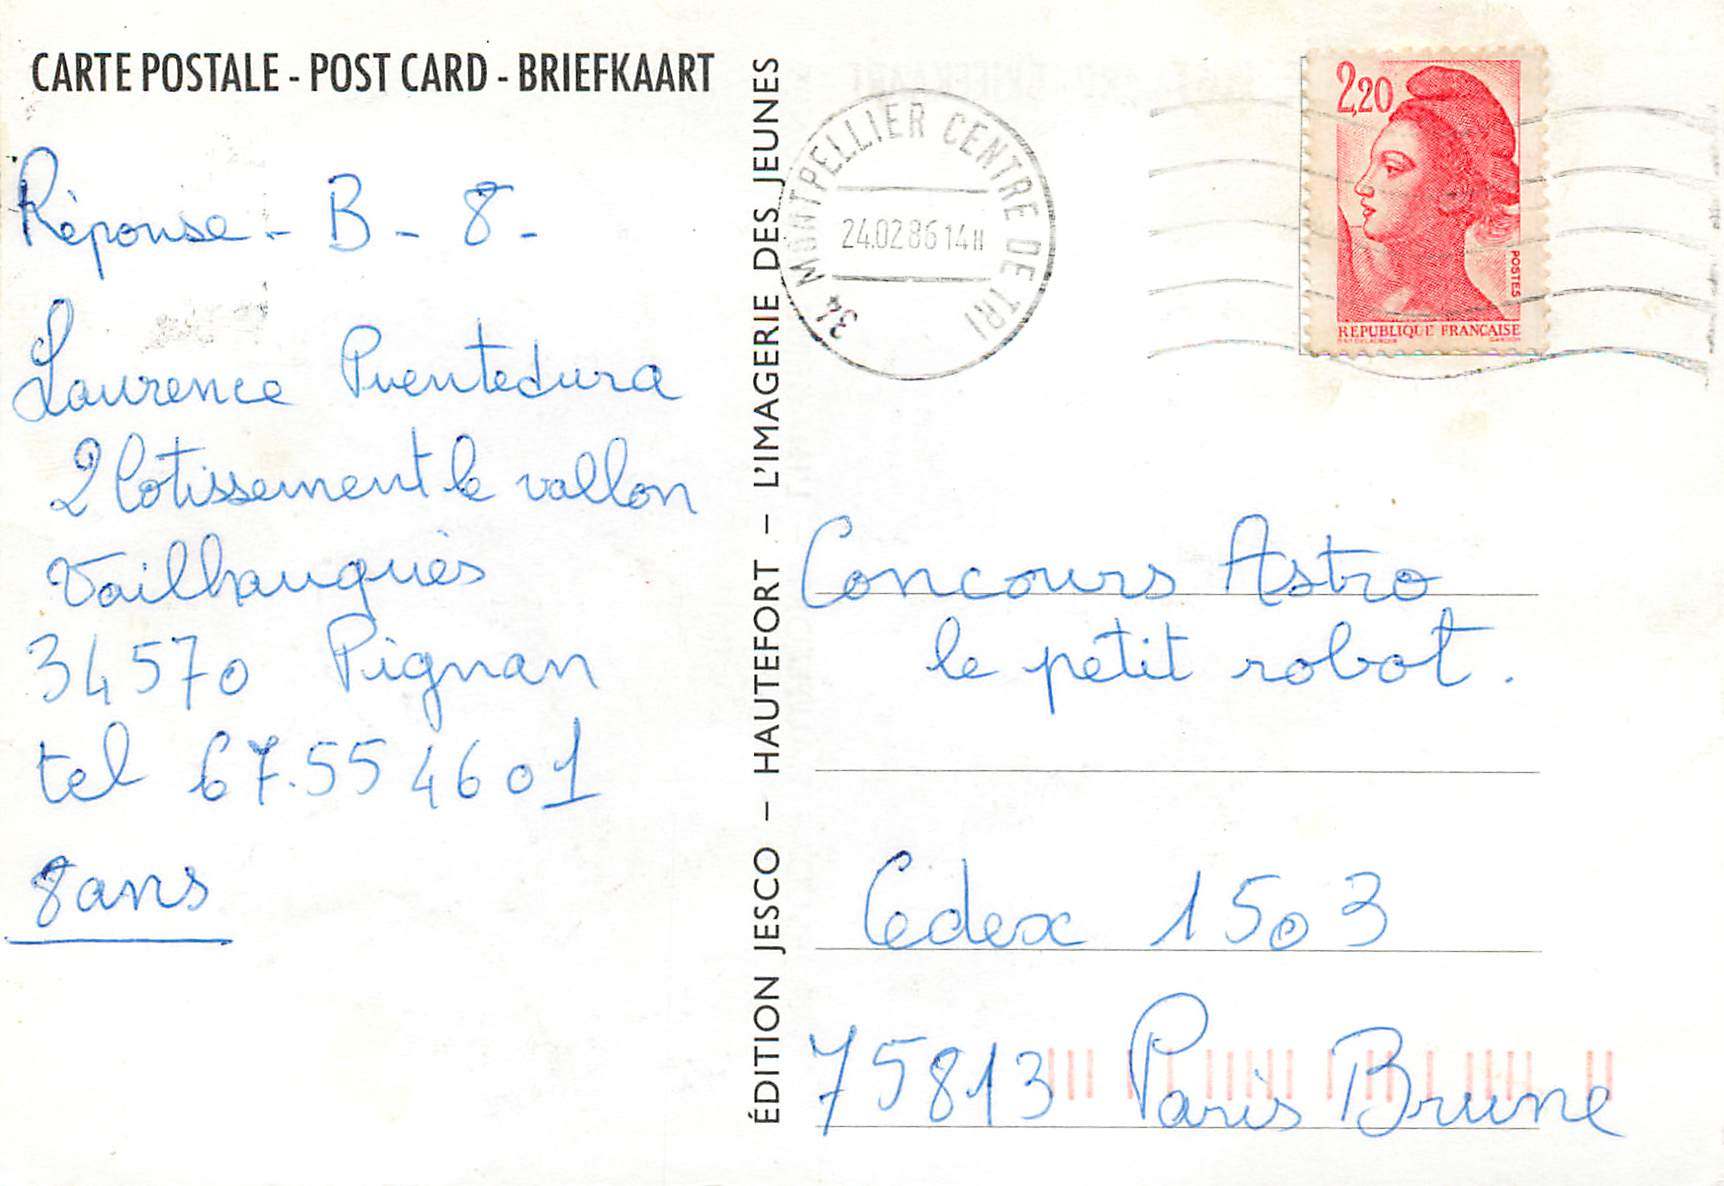 CARTE POSTALE - POST CARD - BRIEFKAART
Réponse - B - 8 -
Laurence Puentedura
2 lotissement le vallon
Vailhauquès
34570 Pignan
tel 67.55 46 01
8 ans
ÉDITION JESCO – HAUTEFORT – L'IMAGERIE DES JEUNES
34 MONTPELLIER CENTRE DE TRI
24.02 86 14H
2,20
POSTES
REPUBLIQUE FRANÇAISE
Concours Astro
le petit robot.
Cedex 1503
75813 Paris Brune